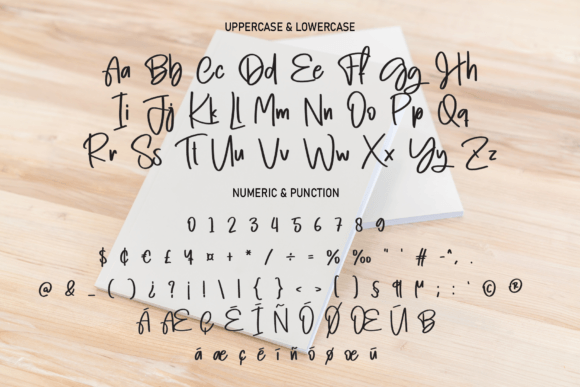 UPPERCASE & LOWERCASE
Aa Bb Cc Dd Ee Ff Gg Hh
Ii Jj Kk Ll Mm Nn Oo Pp Qq
Rr Ss Tt Uu Vv Ww Xx Yy Zz
NUMERIC & PUNCTION
0 1 2 3 4 5 6 7 8 9
$ ¢ € £ ¥ ¤ + * / ÷ = % ‰ " ' # -^, .
@ & _ ( ) ¿ ? ¡ ! \ | { } < > [ ] § ¶ µ ; : ' © ®
Á Æ Ç É Í Ñ Ó Ø Œ Ú ß
á æ ç é í ñ ó ø œ ú